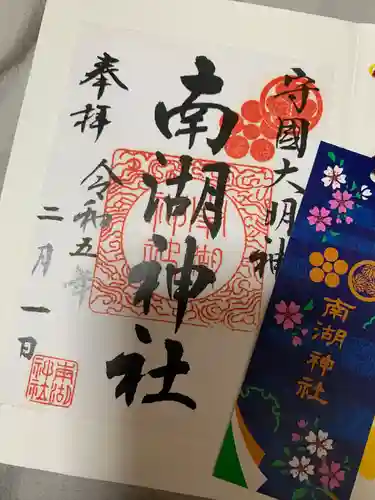 守國大明神
南湖神社
奉拝
令和五年
二月一日
南湖神社
南湖神社
南湖神社